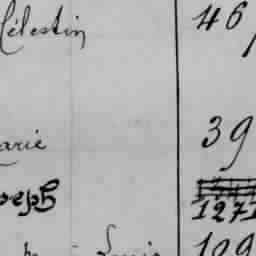 Célestin 46
arie 39
oseph 1271
Louis 109